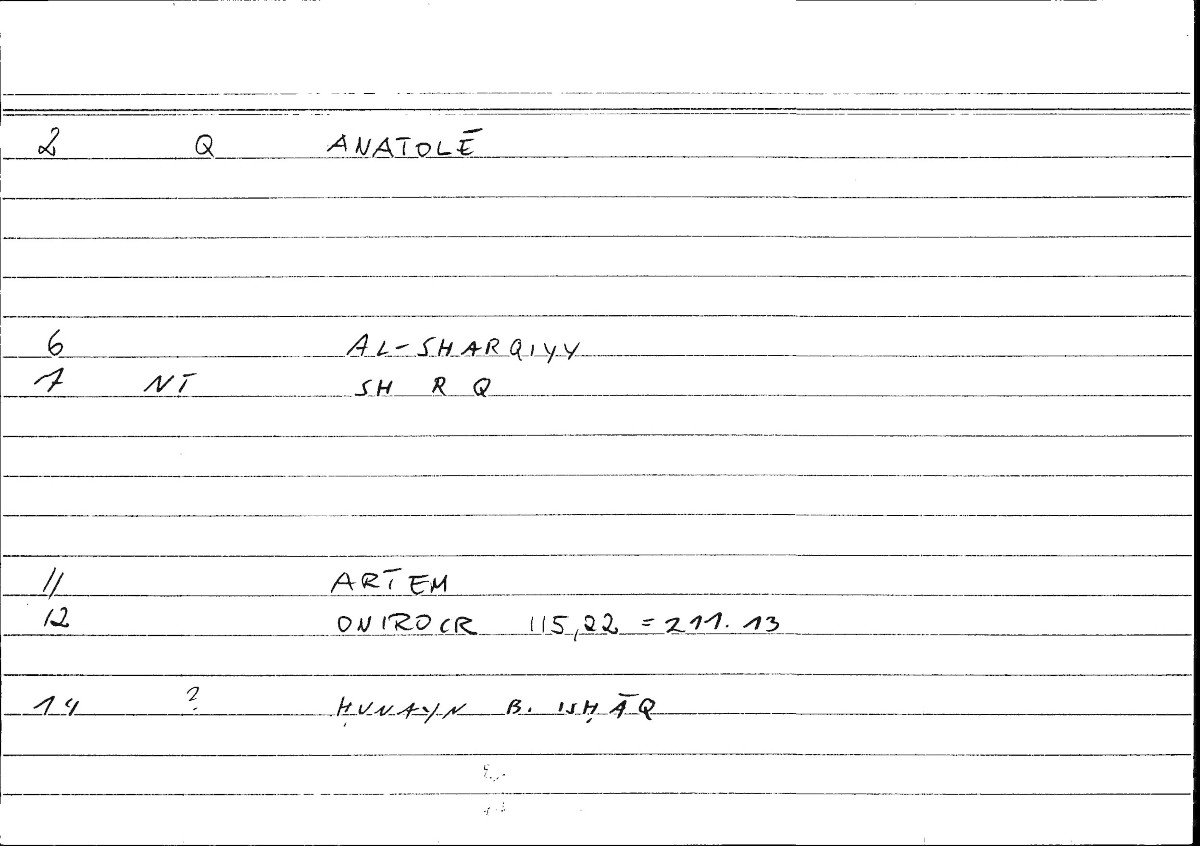 2 Q ANATOLĒ
6 AL-SHARQIYY
7 NT SH R Q
11 ARTEM
12 ONIROCR 115,22 = 211.13
14 ? ḤUNAYN B. ISḤĀQ